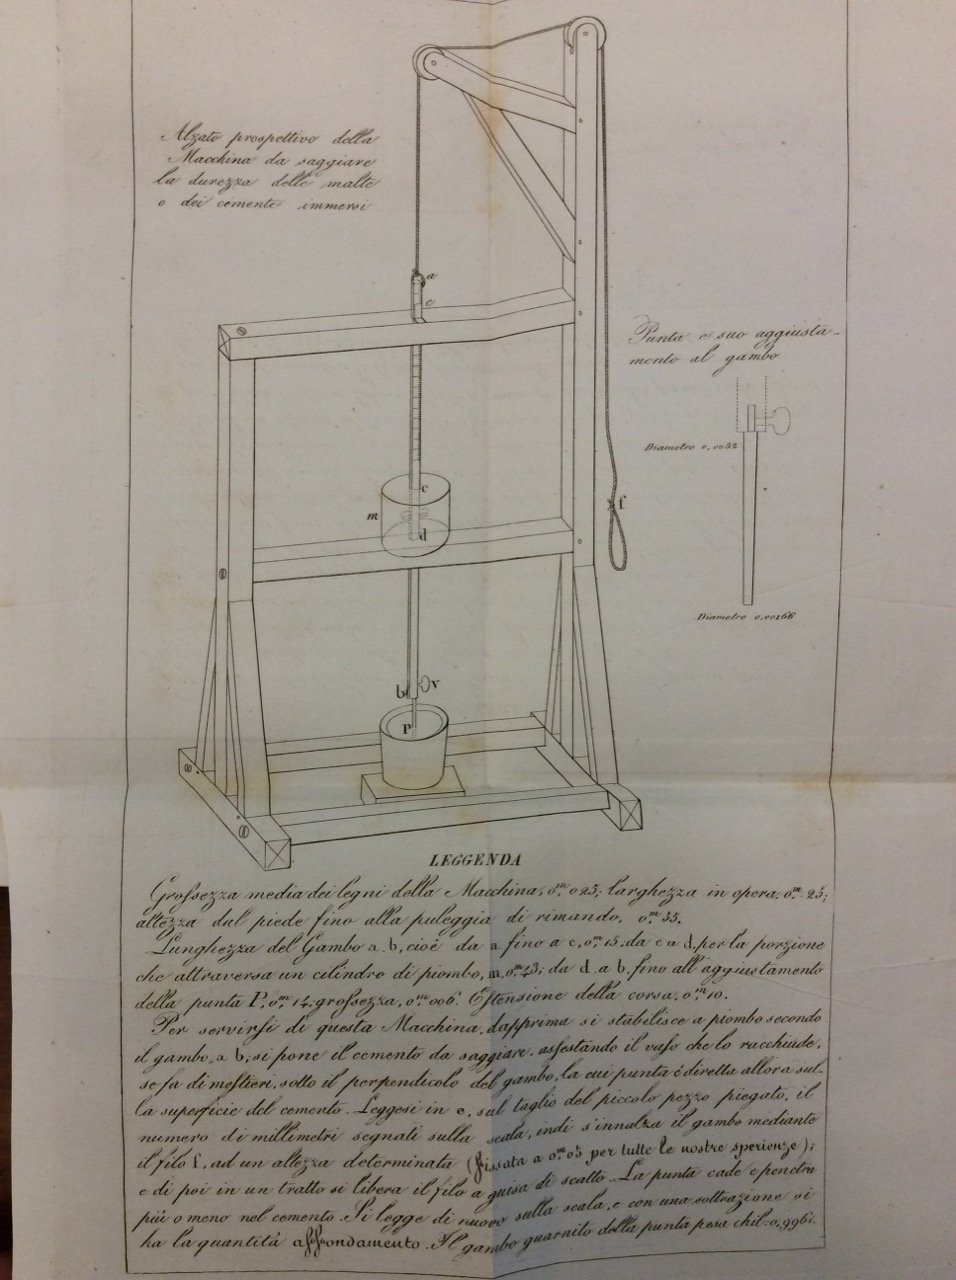 Alzato prospettivo della
Macchina da saggiare
la durezza delle malte
e dei cementi immersi
a
c
Punta e suo aggiusta-
mento al gambo
Diametro 0,0032
c
m
d
f
Diametro 0,00166
b
v
P
LEGGENDA
Grossezza media dei legni della Macchina, 0.m 025; larghezza in opera, 0.m 25;
altezza dal piede fino alla puleggia di rimando, 0.m 55.
Lunghezza del Gambo a b, cioè da a fino a c, 0.m 15; da c a d, per la porzione
che attraversa un cilindro di piombo, m, 0.m 43; da d a b, fino all'aggiustamento
della punta P, 0.m 14; grossezza, 0.m 006. Estensione della corsa, 0.m 10.
Per servirsi di questa Macchina, dapprima si stabilisce a piombo secondo
il gambo, a b; si pone il cemento da saggiare, assestando il vaso che lo racchiude,
se fa di mestieri, sotto il perpendicolo del gambo, la cui punta è diretta allora sul-
la superficie del cemento. Leggesi in e, sul taglio del piccolo pezzo piegato, il
numero di millimetri segnati sulla scala, indi s'innalza il gambo mediante
il filo f, ad un altezza determinata (fissata a 0.m 05 per tutte le nostre sperienze);
e di poi in un tratto si libera il filo a guisa di scatto. La punta cade e penetra
più o meno nel cemento. Si legge di nuovo sulla scala, e con una sottrazione si
ha la quantità affondamento. Il gambo guarnito della punta pesa chil. 0,996.